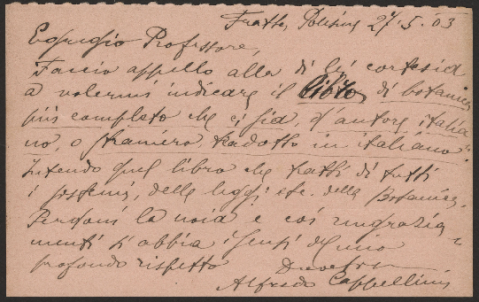 Fratta Polesine 27.5.03
Egregio Professore,
Faccio appello alla di lei cortesia
a volermi indicare il libro di botanica
più completo che ci sia, d'autore italia
no, o straniero tradotto in italiano.
Intendo quel libro che tratti di tutti
i sistemi, delle leggi etc. della Botanica.
Perdoni la noia e coi ringrazia-
menti s'abbia i sensi del mio
profondo rispetto
Alfredo Cappellini